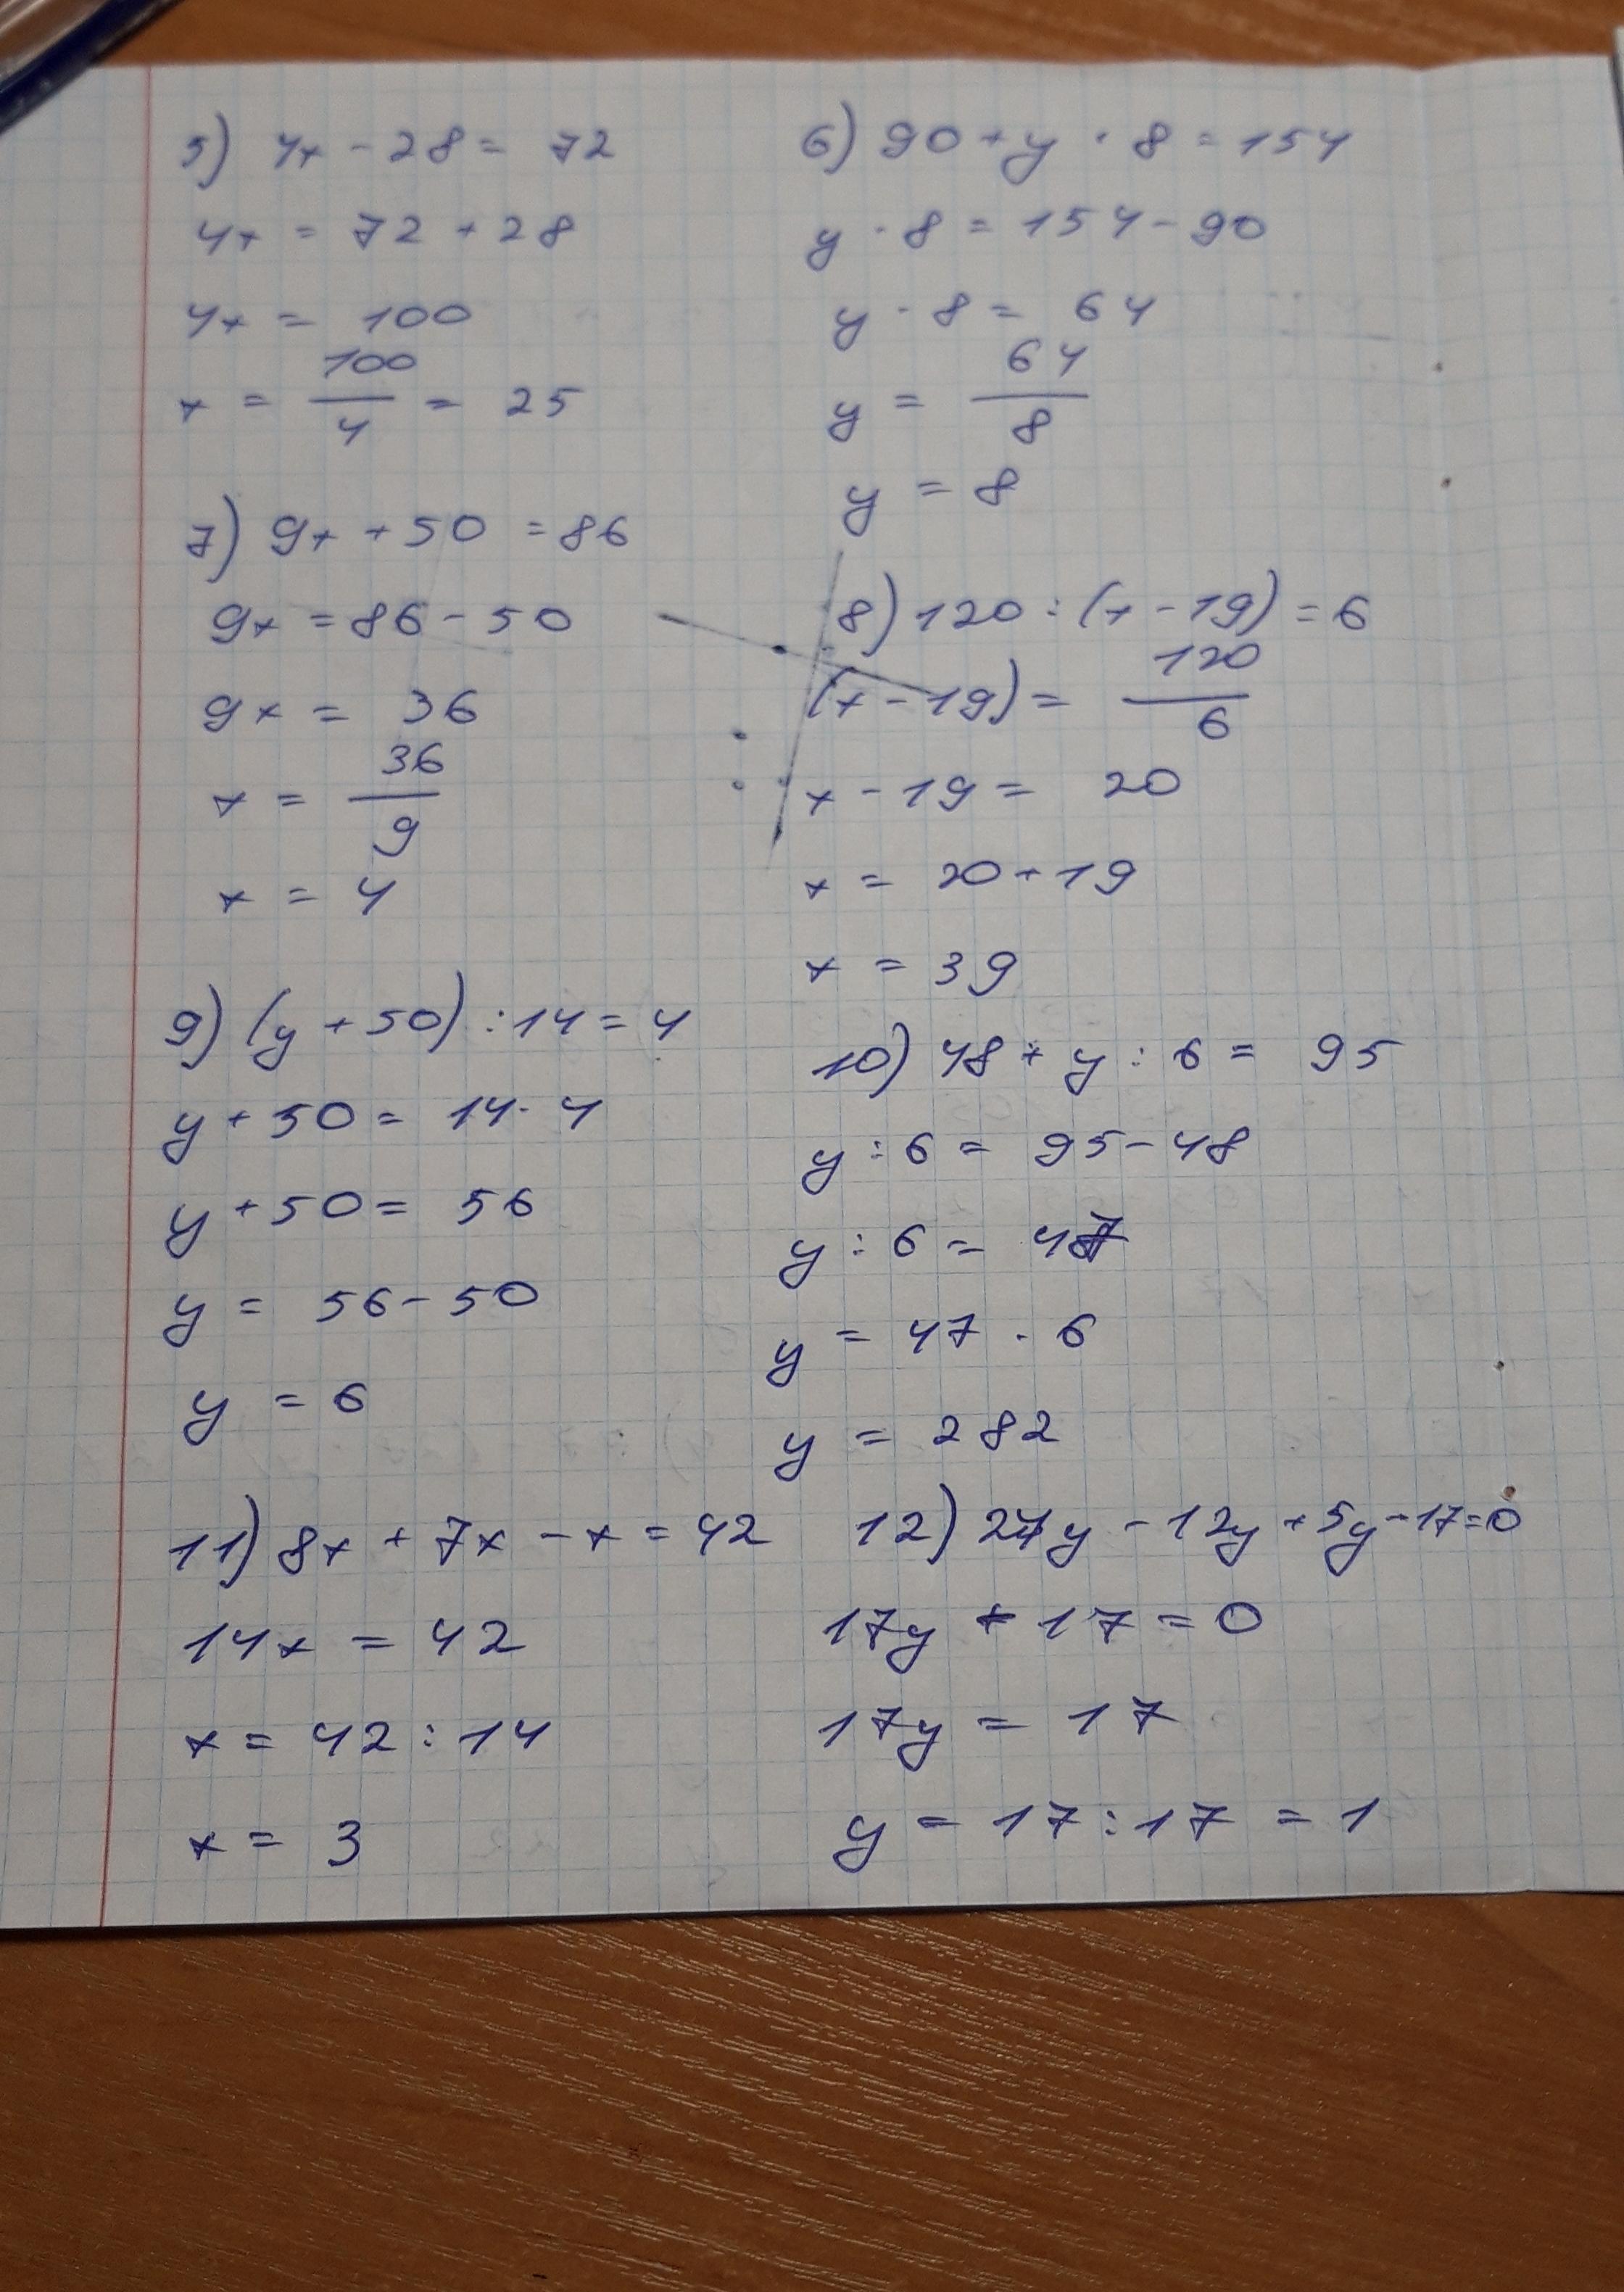 5) 4x - 28 = 72
4x = 72 + 28
4x = 100
x = 100/4 = 25
6) 90 + y · 8 = 154
y · 8 = 154 - 90
y · 8 = 64
y = 64/8
y = 8
7) 9x + 50 = 86
9x = 86 - 50
9x = 36
x = 36/9
x = 4
8) 120 : (x - 19) = 6
(x - 19) = 120/6
x - 19 = 20
x = 20 + 19
x = 39
9) (y + 50) : 14 = 4
y + 50 = 14 · 4
y + 50 = 56
y = 56 - 50
y = 6
10) 48 + y : 6 = 95
y : 6 = 95 - 48
y : 6 = 47
y = 47 · 6
y = 282
11) 8x + 7x - x = 42
14x = 42
x = 42 : 14
x = 3
12) 24y - 12y + 5y - 17 = 0
17y - 17 = 0
17y = 17
y = 17 : 17 = 1